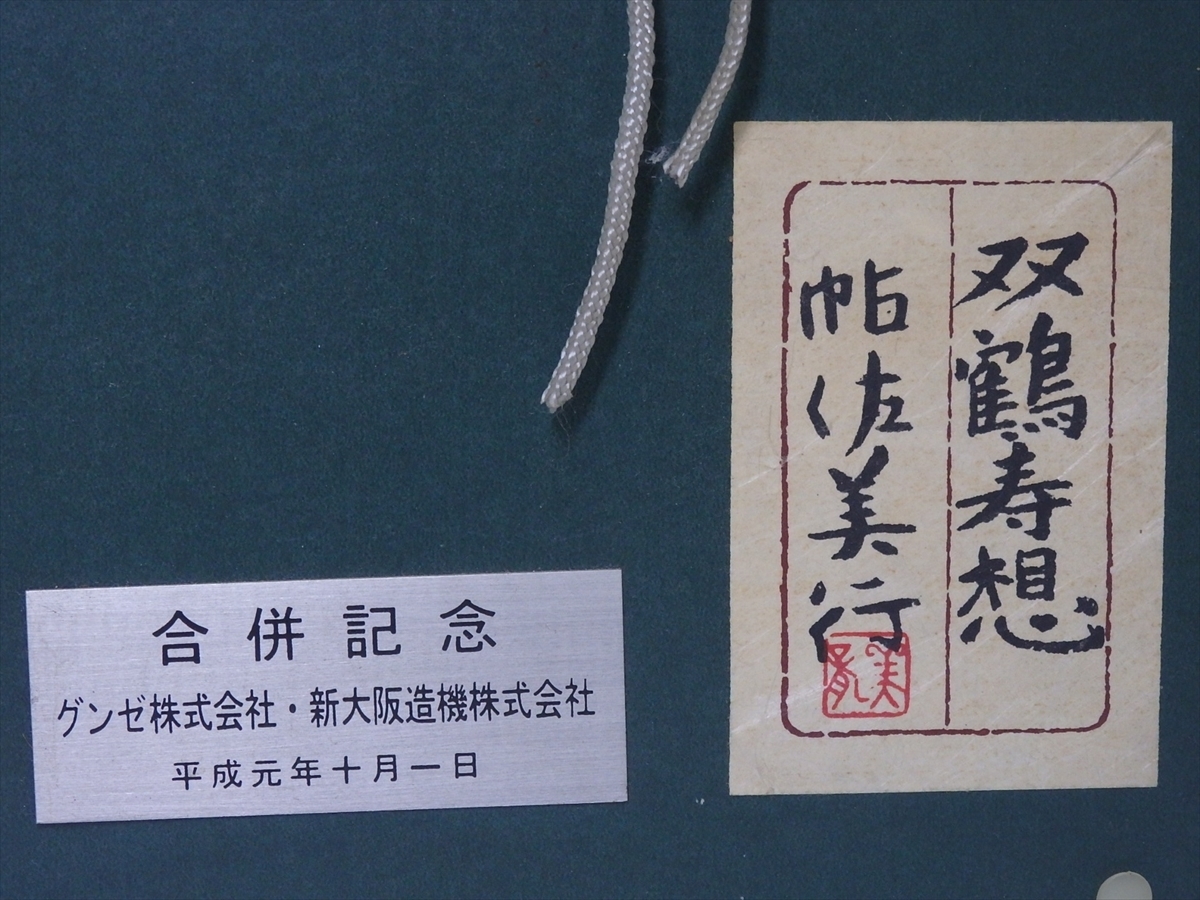 双鶴寿想
帖佐美行
合併記念
グンゼ株式会社・新大阪造機株式会社
平成元年十月一日